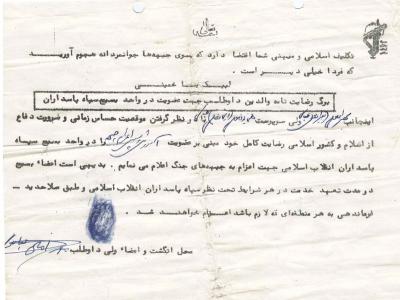 تکلیف اسلامی و میهنی شما اقتضا دارد که بسوی جبهه‌ها جوانمردانه هجوم آورید
که فردا خیلی دیر است .
لبیک یا خمینی
برگ رضایت نامه والدین داوطلب جهت عضویت در واحد بسیج سپاه پاسداران
اینجانب ولی سرپرست با در نظر گرفتن موقعیت حساس زمانی و ضرورت دفاع
از اسلام و کشور اسلامی رضایت کامل خود مبنی بر عضویت را در واحد بسیج سپاه
پاسداران انقلاب اسلامی جهت اعزام به جبهه‌های جنگ اعلام می نمایم . بدیهی است اعضاء بسیج
در مدت تعهد خدمت در هر شرایط تحت نظر سپاه پاسداران انقلاب اسلامی و طبق صلاحدید
فرماندهی به هر منطقه‌ای که لازم باشد اعزام خواهند شد .
محل انگشت و امضاء ولی داوطلب